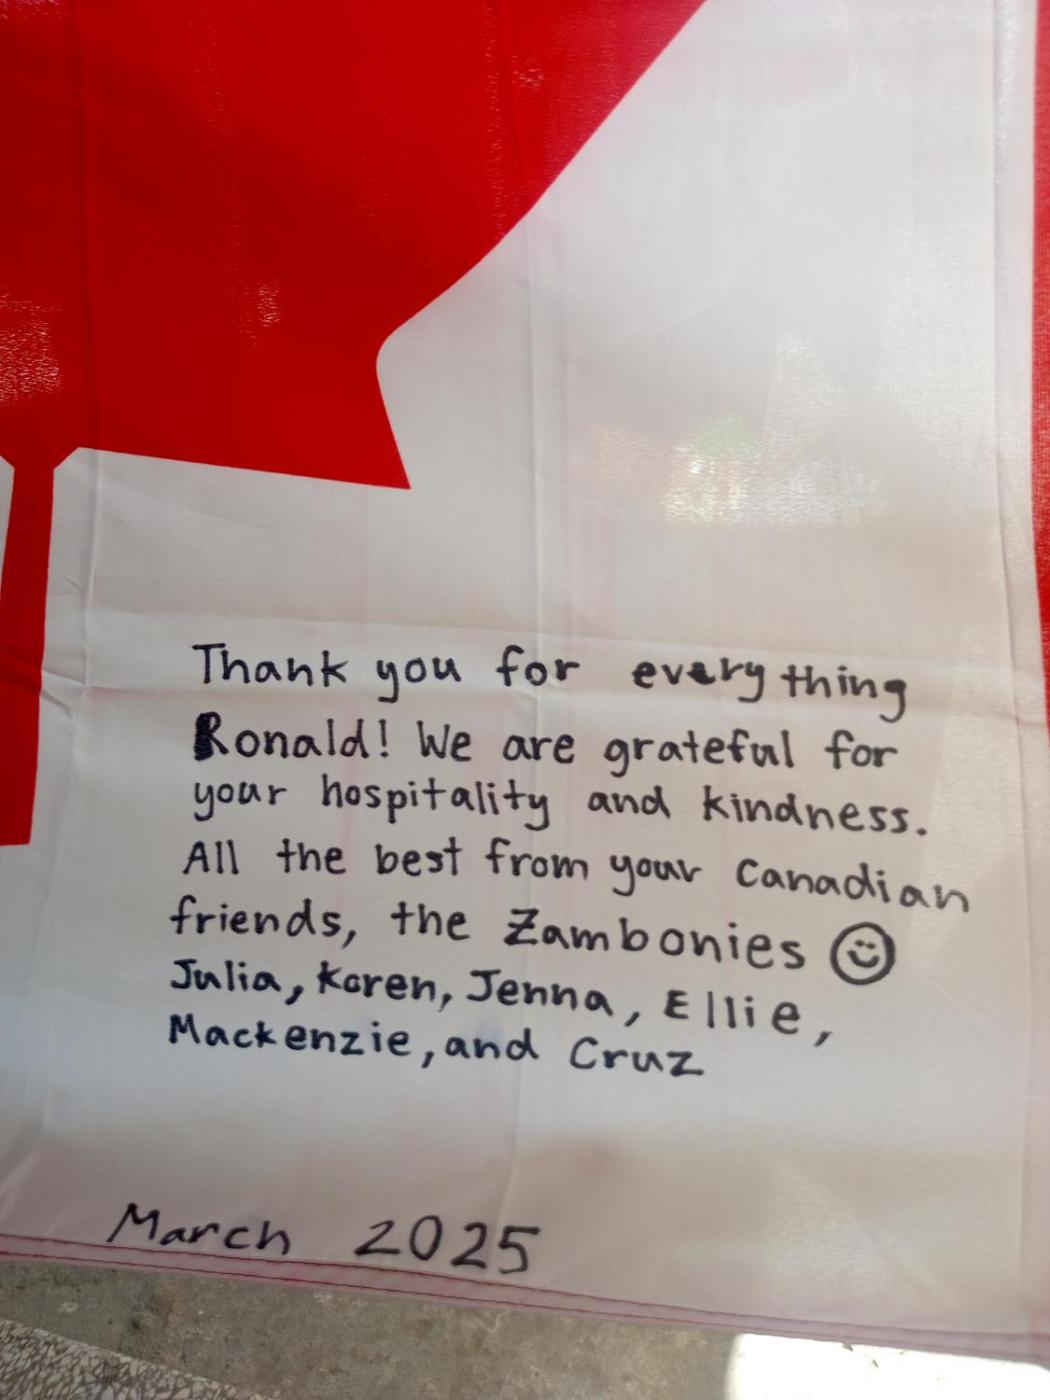 Thank you for everything
Ronald! We are grateful for
your hospitality and kindness.
All the best from your Canadian
friends, the Zambonies
Julia, Karen, Jenna, Ellie,
Mackenzie, and Cruz
March 2025